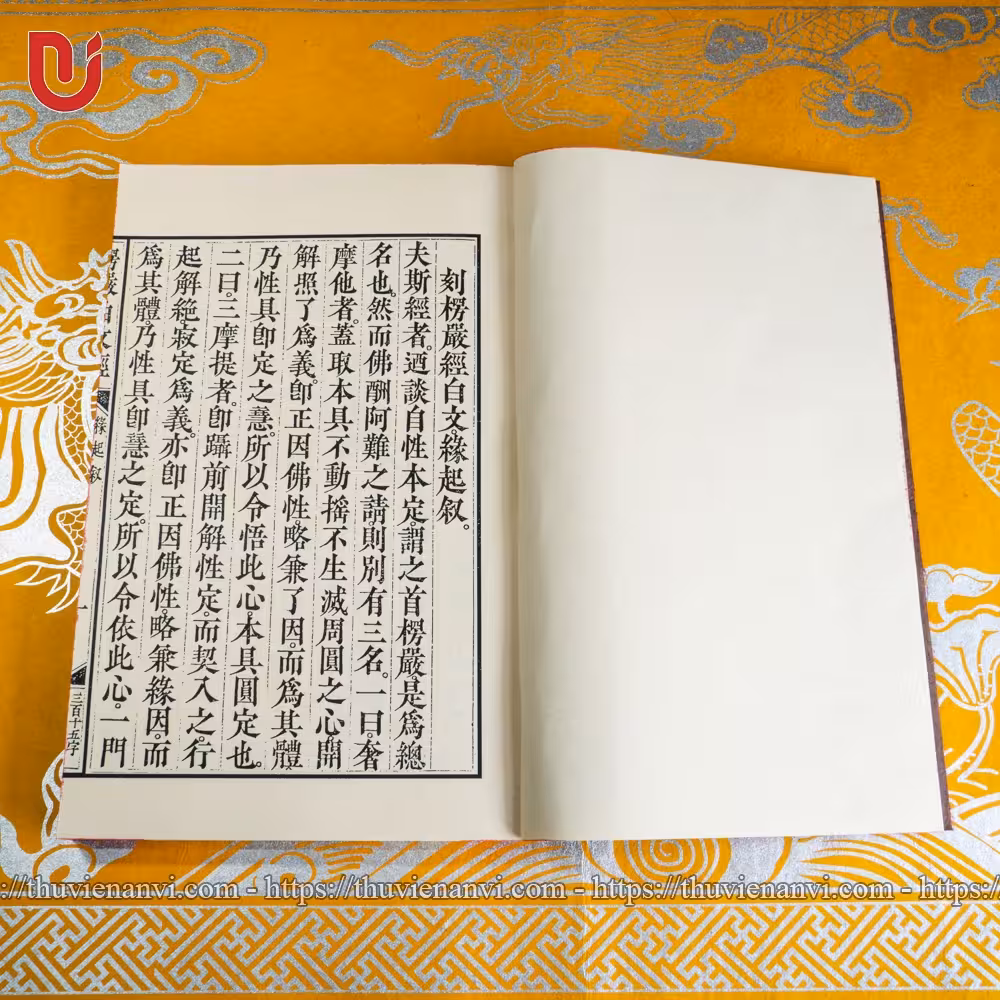 刻楞嚴經白文緣起叙。
夫斯經者。迺談自性本定。謂之首楞嚴。是爲總
名也。然而佛酬阿難之請。則別有三名。一曰。奢
摩他者。蓋取本具不動搖不生滅周圓之心。開
解照了爲義。卽正因佛性。略兼了因。而爲其體
乃性具卽定之慧。所以令悟此心。本具圓定也。
二曰。三摩提者。卽躡前開解性定。而契入之。行
起解絶寂定爲義。亦卽正因佛性。略兼緣因。而
爲其體。乃性具卽慧之定。所以令依此心。一門
文經
緣起叙
一
三百十五字
://thuvienanvi.com - https://thuvienanvi.com - https://thuvienanvi.com - https:/